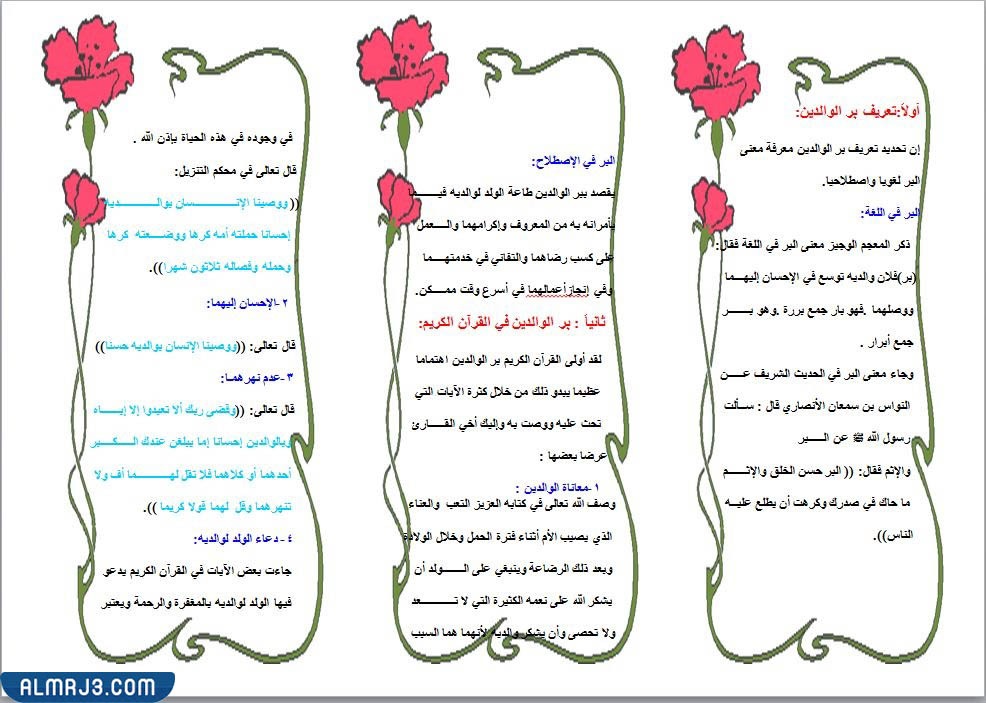 أولاً:تعريف بر الوالدين:
إن تحديد تعريف بر الوالدين معرفة معنى
البر لغويا واصطلاحيا.
البر في اللغة:
ذكر المعجم الوجيز معنى البر في اللغة فقال:
(بر)فلان والديه توسع في الإحسان إليهــما
ووصلهما .فهو بار جمع بررة .وهو بـــــر
جمع أبرار .
وجاء معنى البر في الحديث الشريف عــــن
النواس بن سمعان الأنصاري قال : ســألت
رسول الله ﷺ عن الــــبر
والإثم فقال: (( البر حسن الخلق والإثــــم
ما حاك في صدرك وكرهت أن يطلع عليــه
الناس)).
البر في الإصطلاح:
يقصد ببر الوالدين طاعة الولد لوالديه فيــــما
يأمرانه به من المعروف وإكرامهما والــــعمل
على كسب رضاهما والتفاني في خدمتهــــما
وفي إنجازأعمالهما في أسرع وقت ممــــكن.
ثانياً : بر الوالدين في القرآن الكريم:
لقد أولى القرآن الكريم بر الوالدين اهتماما
عظيما يبدو ذلك من خلال كثرة الآيات التي
تحث عليه ووصت به وإليك أخي القــــارئ
عرضا بعضها :
١-معاناة الوالدين :
وصف الله تعالى في كتابه العزيز التعب والعناء
الذي يصيب الأم أثناء فترة الحمل وخلال الولادة
وبعد ذلك الرضاعة وينبغي على الـــــولد أن
يشكر الله على نعمه الكثيرة التي لا تـــــــعد
ولا تحصى وأن يشكر والديه لأنهما هما السبب
في وجوده في هذه الحياة بإذن الله .
قال تعالى في محكم التنزيل:
(( ووصينا الإنـــــــــسان بوالــــــــديه
إحسانا حملته أمه كرها ووضــــعته كرها
وحمله وفصاله ثلاثون شهرا)).
٢-الإحسان إليهما:
قال تعالى: ((ووصينا الإنسان بوالديه حسنا))
٣-عدم نهرهمـا:
قال تعالى: ((وقضى ربك ألا تعبدوا إلا إيــــاه
وبالوالدين إحسانا إما يبلغن عندك الــــكــــبر
أحدهما أو كلاهما فلا تقل لهـــــــما أف ولا
تنهرهما وقل لهما قولا كريما )).
٤- دعاء الولد لوالديه:
جاءت بعض الآيات في القرآن الكريم يدعو
فيها الولد لوالديه بالمغفرة والرحمة ويعتبر
ALMRJ3.COM